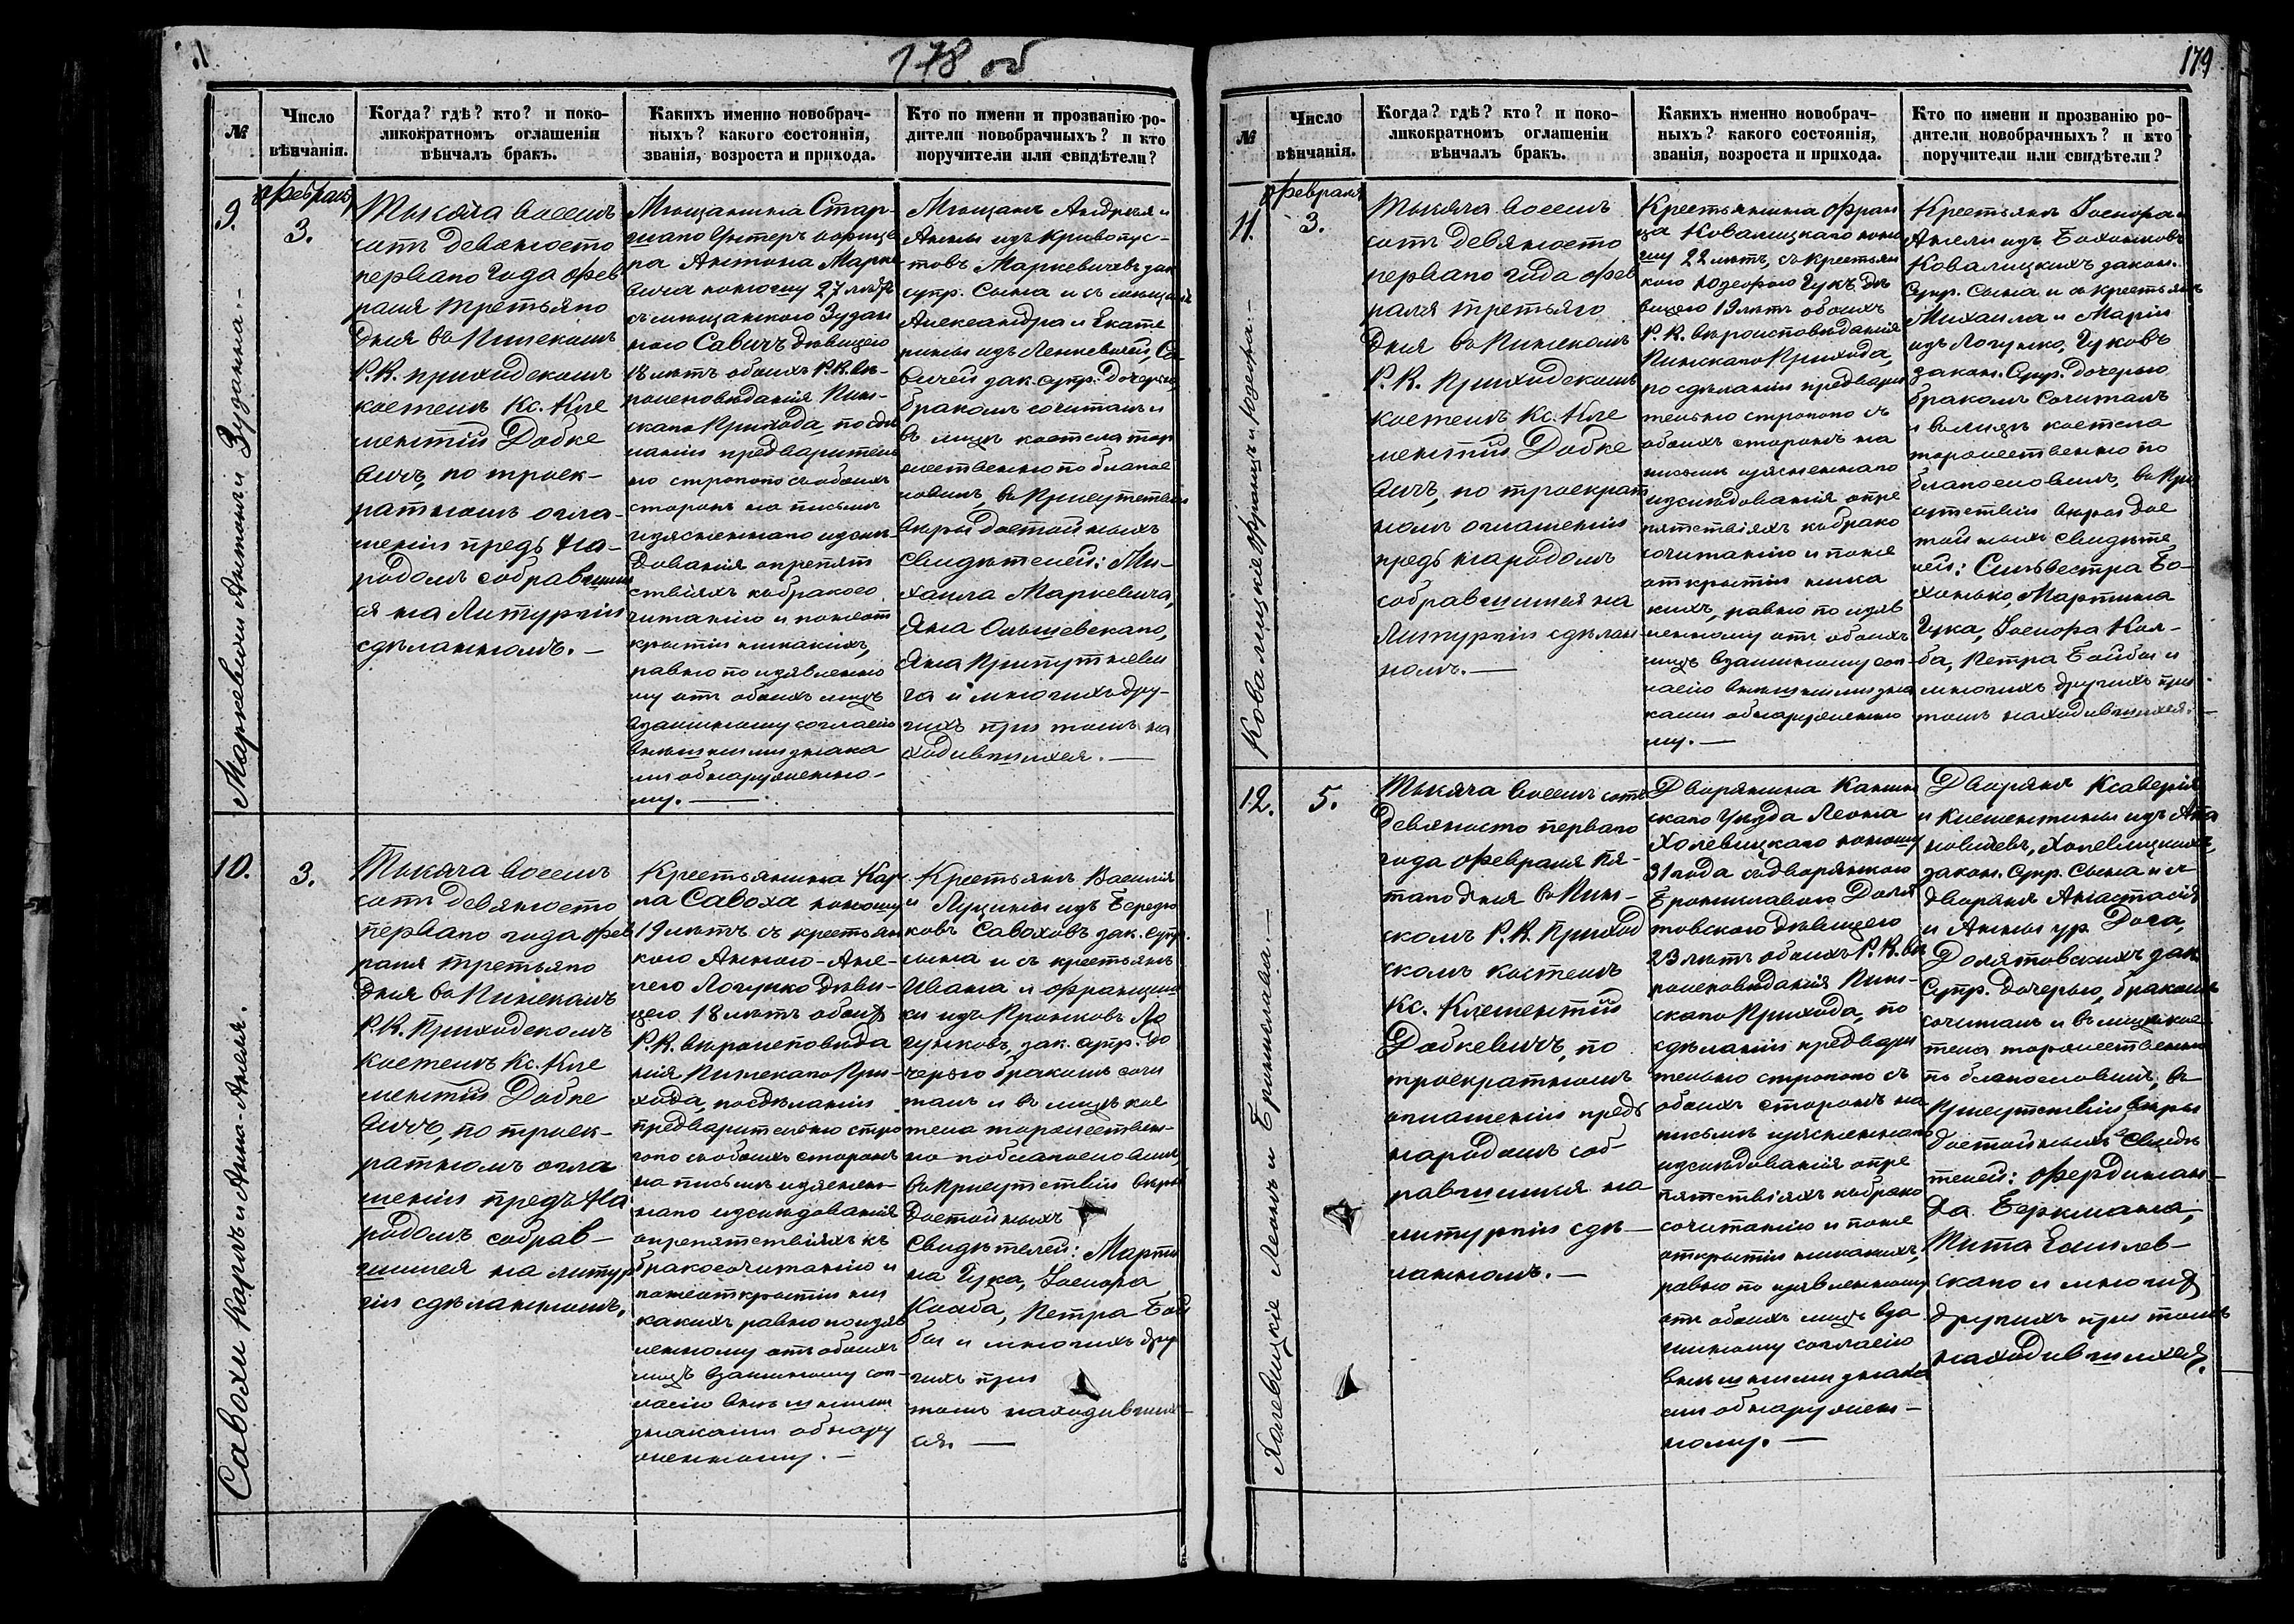 178 об
№
Число
вѣнчанія.
Когда? гдѣ? кто? и поко-
ликократномъ оглашеніи
вѣнчалъ бракъ.
Какихъ именно новобрач-
ныхъ? какого состоянія,
званія, возроста и прихода.
Кто по имени и прозванію ро-
дители новобрачныхъ? и кто
поручители или свидѣтели?
9.
Маркевичи Антонъ и Зузанна.—
Февраля
3.
Тысяча восемь
сотъ девяносто
перваго года Фев
раля третьяго
дня въ Пинскомъ
Р.К. приходскомъ
костелѣ Кс. Кле
ментій Добке
вичъ, по троек-
ратномъ огла-
шеніи предъ на-
родомъ собравшим
ся на Литургіи
сдѣланномъ.—
Мѣщанина Стар-
шаго Унтеръ офице
ра Антона Марке
вича юношу 27 лѣтъ
съ мѣщанкою Зузан
ною Савичъ дѣвицею
18 лѣтъ обоихъ Р.К. вѣ-
роисповѣданія Пин-
скаго Прихода, по сдѣ
ланіи предваритель
но строгого съ обоихъ
сторонъ на письмѣ
изясненнаго изслѣ-
дованія о препят
ствіяхъ къ бракосо
читанію и понеот
крытіи никакихъ,
равно по изявленно
му отъ обоихъ лицъ
взаимному согласію
внѣшними знака
ми обнаруженно-
му.—
Мѣщанъ Андрея и
Анны изъ Кривопус-
товъ Маркевичевъ зак
супр. сына и съ мѣщанъ
Александра и Екате
рины изъ Ленкевичей, Са
вичей зак. супр. дочерью,
бракомъ сочиталъ и
въ лицѣ костела тор
жественно по благое
ловилъ, въ присутствіи
вѣры достойныхъ
свидѣтелей: Ми-
хаила Маркевича,
Яна Ольшевскаго,
Яна Припутневи
ча и многихъ дру-
гихъ при томъ на
ходившихся.—
10.
Савохи Карлъ и Анна-Анеля.
3.
Тысяча восемь
сотъ девяносто
перваго года Фев
раля третьяго
дня въ Пинскомъ
Р.К. Приходскомъ
костелѣ Кс. Кле
ментій Добке
вичъ, по троек-
ратномъ огла
шеніи предъ на
родомъ собрав-
шимся на литур
гіи сдѣланномъ.
Крестьянина Кар
ла Савоха юношу
19 лѣтъ съ крестьян
кою Анною-Ане-
лею Логушко дѣви-
цею 18 лѣтъ обоихъ
Р.К. вѣроисповѣда
нія Пинскаго При-
хода, по сдѣланіи
предварительно стро
гого съ обоихъ сторонъ
на письмѣ изяснен-
наго изслѣдованія
о препятствіяхъ къ
бракосочитанію и
понеоткрытіи ни
какихъ равно по изяв
ленному отъ обоихъ
лицъ взаимному сог-
ласію внѣшними
знаками обнару
женному.—
Крестьянъ Василія
и Луцины изъ
Савоховъ зак. супр.
сына и съ крестьянъ
Ивана и Францишки
изъ Пронковъ Ло
гушковъ, зак. супр. до
черью бракомъ сочи
талъ и въ лицѣ кос
тела торжествен-
но поблагословилъ,
въ присутствіи вѣры
достойныхъ
свидѣтелей: Марти
на Гука, Іосифа
Колба, Петра Бой
бы и многихъ дру
гихъ при
томъ находивших-
ся.—
179
№
Число
вѣнчанія.
Когда? гдѣ? кто? и поко-
ликократномъ оглашеніи
вѣнчалъ бракъ.
Какихъ именно новобрач-
ныхъ? какого состоянія,
званія, возроста и прихода.
Кто по имени и прозванію ро-
дители новобрачныхъ? и кто
поручители или свидѣтели?
11.
Ковалицкіе Францъ и Юзефа.—
Февраля
3.
Тысяча восемь
сотъ девяносто
перваго года Фев
раля третьяго
дня въ Пинскомъ
Р.К. Приходскомъ
костелѣ Кс. Кле
ментій Добке
вичъ, по троекрат
номъ оглашеніи
предъ народомъ
собравшимся на
Литургіи сдѣлан
номъ.—
Крестьянина Фран
ца Ковалицкаго юно
шу 22 лѣтъ, съ крестьян
кою Юзефою Гукъ, дѣ
вицею 19 лѣтъ обоихъ
Р.К. вѣроисповѣданія
Пинскаго Прихода,
по сдѣланіи предвари
тельно строгого съ
обоихъ сторонъ на
письмѣ изясненнаго
изслѣдованія о пре
пятствіяхъ къ брако
сочитанію и поне
открытіи ника
кихъ, равно по изяв
ленному отъ обоихъ
лицъ взаимному сог
ласію внѣшними зна
ками обнаруженно
му.—
Крестьянъ Іосифа и
Анели изъ Бохонковъ
Ковалицкихъ закон.
супр. сына и съ крестьянъ
Михаила и Маріи
изъ Логушко, Гуковъ
закон. супр. дочерью
бракомъ сочиталъ
и въ лицѣ костела
торжественно по
благословилъ, въ при
сутствіи вѣры дос
тойныхъ свидѣте
лей: Сильвестра Бо-
хонько, Мартина
Гука, Іосифа Кол-
ба, Петра Бойбы и
многихъ другихъ при
томъ находившихся.—
12.
Холевицкіе Леонъ и Брониславa.—
5.
Тысяча восемь сотъ
девяносто перваго
года Февраля пя-
таго дня въ Пин-
скомъ Р.К. Приход
скомъ костелѣ
Кс. Клементій
Добкевичъ, по
троекратномъ
оглашеніи предъ
народомъ соб-
равшимся на
литургіи сдѣ-
ланномъ.—
Дворянина
скаго Уѣзда Леона
Холевицкаго юношу
31 года съ дворянкою
Брониславою Доля
товскою дѣвицею
23 лѣтъ обоихъ Р.К. вѣ
роисповѣданія Пин-
скаго Прихода, по
сдѣланіи предвари
тельно строгого съ
обоихъ сторонъ на
письмѣ изясненнаго
изслѣдованія о пре
пятствіяхъ къ брако
сочитанію и поне
открытіи никакихъ,
равно по изявленному
отъ обоихъ лицъ вза
имному согласію
внѣшними знака
ми обнаружен-
ному.—
Дворянъ Ксаверія
и Клементины изъ
Холевицкихъ,
закон. супр. сына и съ
дворянъ Анастасія
и Анны ур. Дога,
Долятовскихъ зак.
супр. дочерью, бракомъ
сочиталъ и въ лицѣ кос
тела торжественно
по благословилъ, въ
присутствіи вѣры
достойныхъ свидѣ
телей: Фердинан-
да Беркмана,
Тита
скаго и многихъ
другихъ при томъ
находившихся.